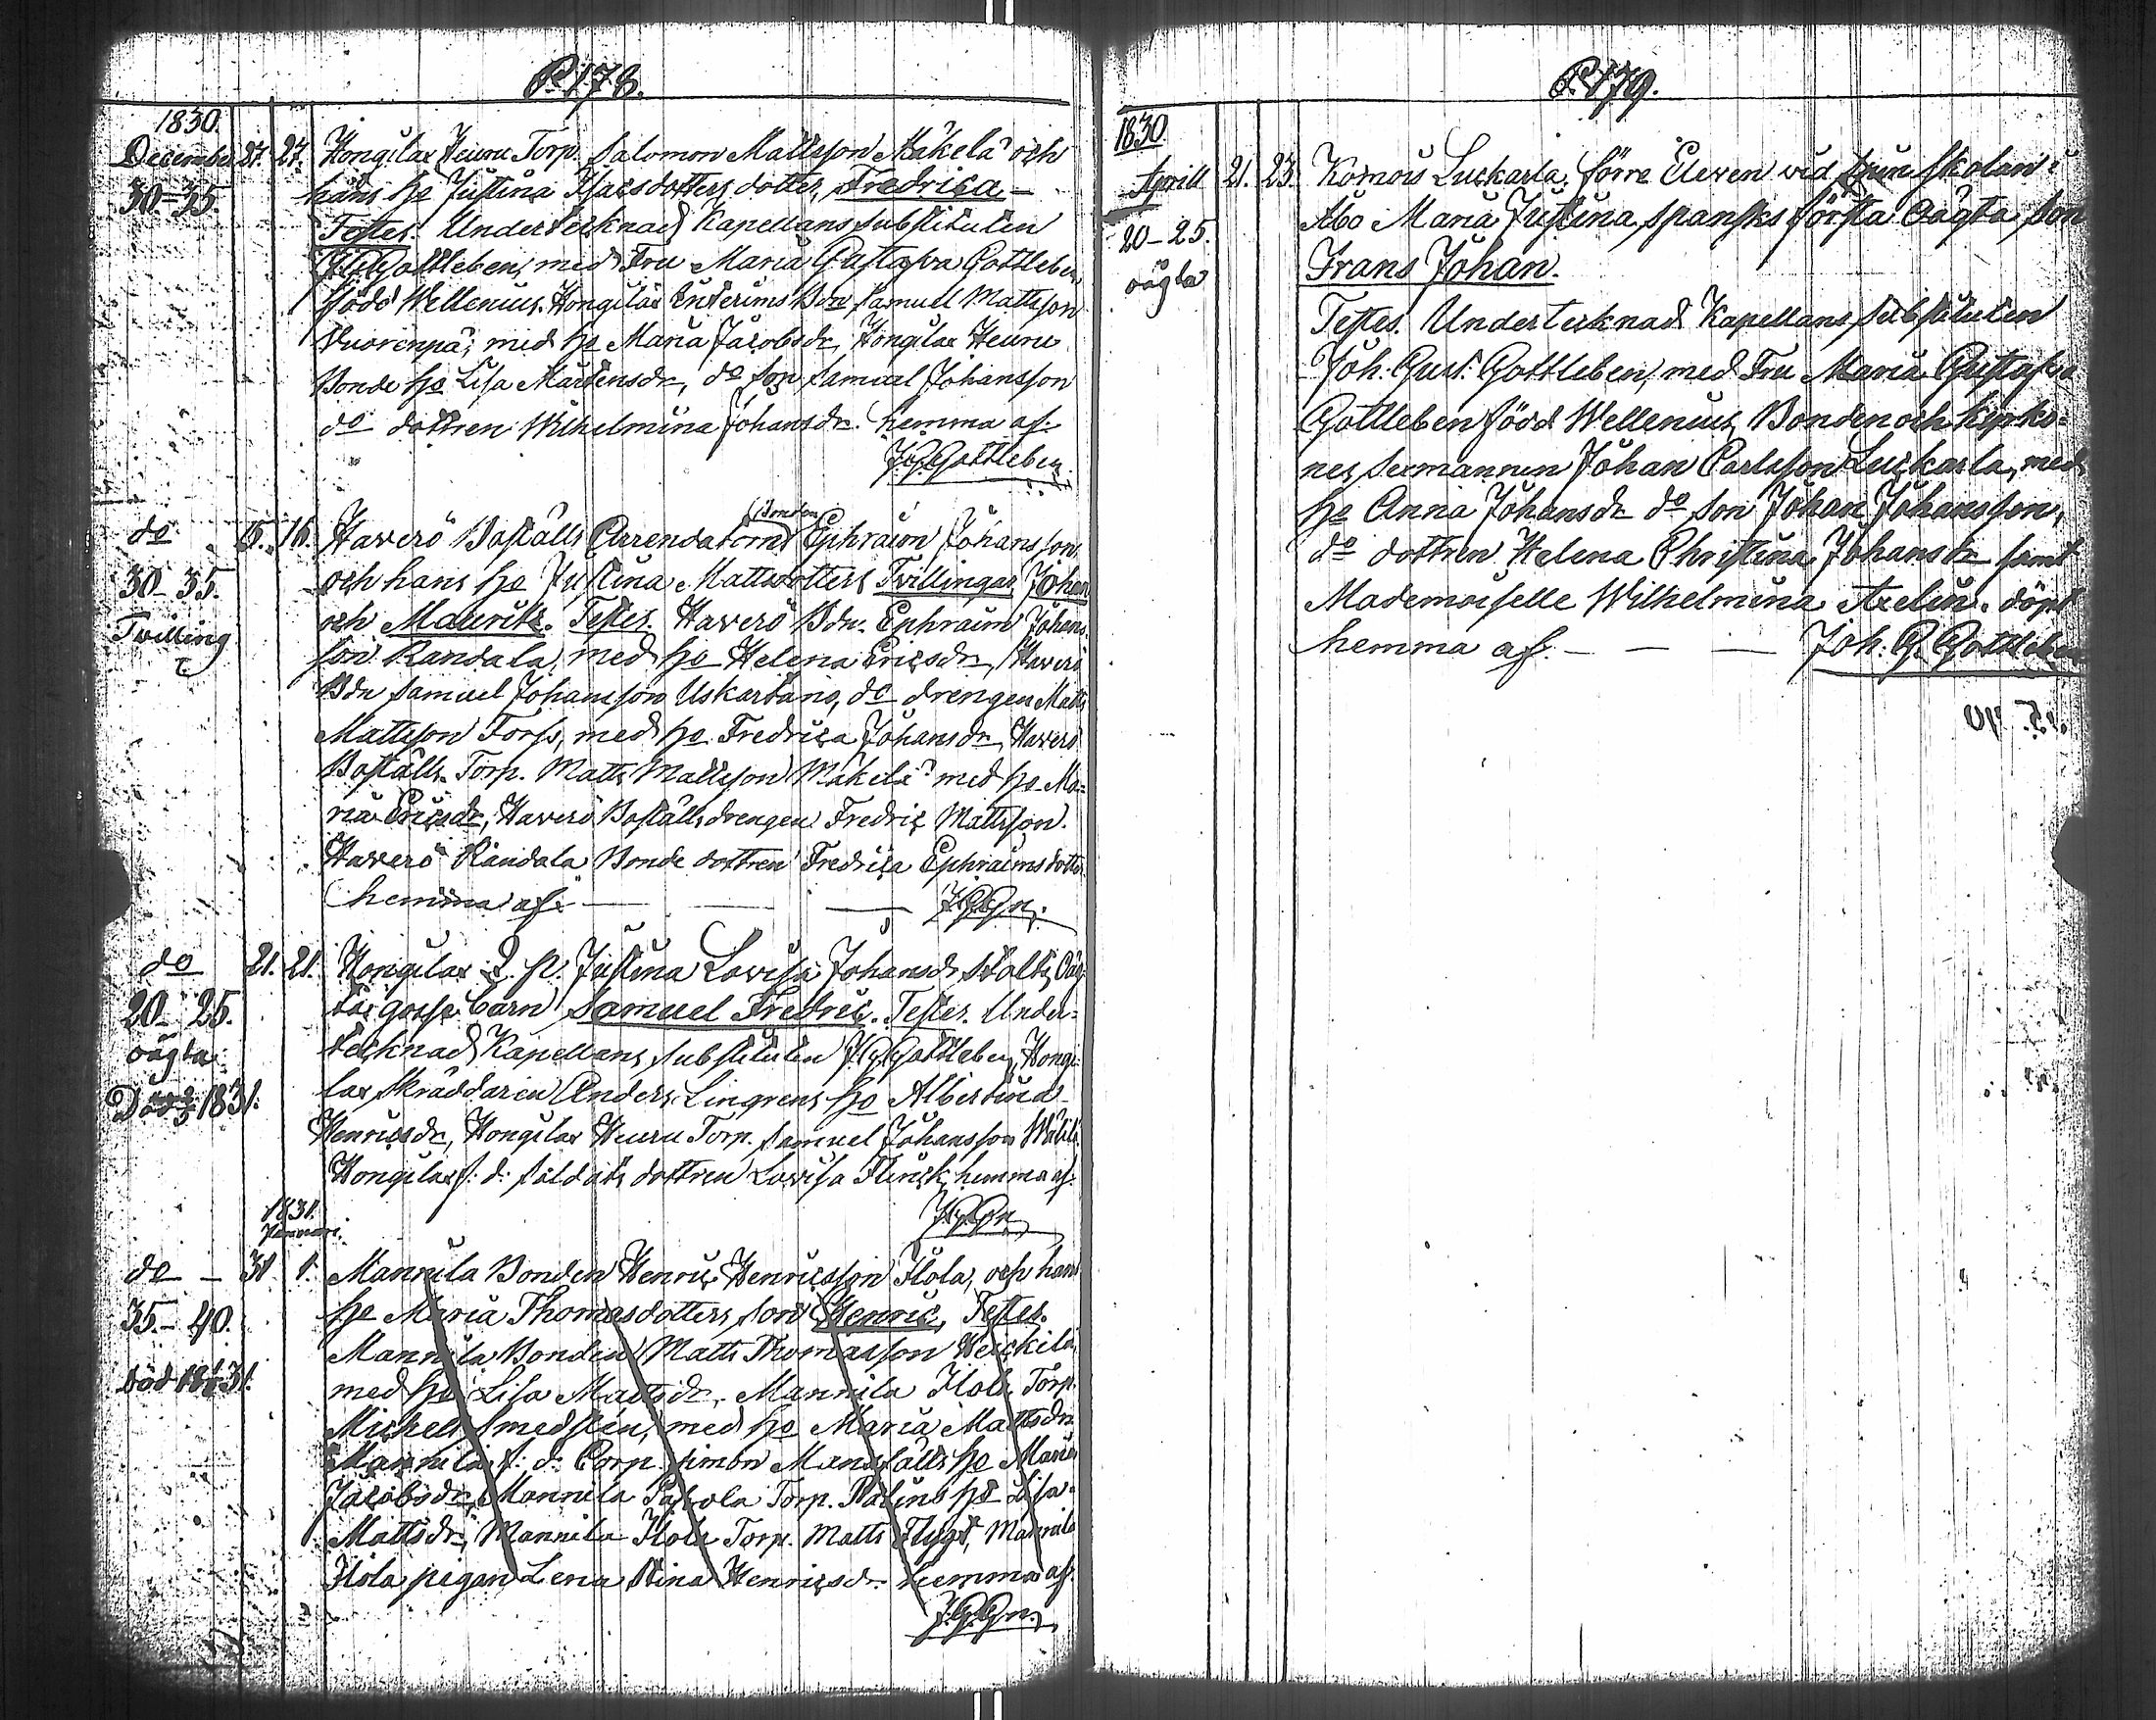 P. 178.
1830.
December 27. 27. Hongilax Heuru Torp. Salomon Mattsson Mäkelä och
30-35. hans ho Justina Isacsdotters dotter, Fredrica -
Testes. Undertecknad Kapellans substituten
J. G. Gottleben, med Fru Maria Gustafva Gottleben
född Wellenius. Hongilax Interims Bdn Samuel Mattsson
Vuorenpä, med ho Maria Jacobsdr, Hongilax Heuru
Bonde ho Lisa Mårtensdr, do son Samuel Johansson
do dottren Wilhelmina Johansdr. hemma af.
J. G. Gottleben.
do 15. 16. Haverö Boställs Arrendatorns Bonden Ephraim Johansson
30-35. och hans ho Justina Mattsdotters Tvillingar Johan
Tvilling och Mauritz. Testes. Haverö Bdn. Ephraim Johans-
son Randala, med ho Helena Ericsdr, Haverö
Bdn Samuel Johansson Uskartano, do drengen Matts
Mattsson Forss, med ho Fredrica Johansdr, Haverö
Boställs Torp. Matts Mattsson Mäkelä med ho Ma=
ria Ericsdr, Haverö Boställsdrengen Fredric Mattsson.
Haverö Randala Bonde dottren Fredrica Ephraimsdotter
hemma af. — — — J. G. Gn.
do 21. 21. Hongilax Q. P. Justina Lovisa Johansdr Stolts Oäg-
20-25. ta gosse barn Samuel Fredric. Testes. Under=
oägta tecknad Kapellans substituten J. G. Gottleben, Hongi-
Död 1831. lax skräddaren Anders Lingrens ho Albertina
Henricsdr, Hongilax Heuru Torp. Samuel Johansson
Hongilax f: d: soldats dottren Lovisa Flinck, hemma af.
J. G. Gn.
1831.
Januari.
do - 31 1. Mannila Bonden Henric Henricsson Ilola, och hans
35-40. ho Maria Thomasdotters son Henric, Testes.
Mannila Bonden Matts Thomasson Heickilä,
död 31. med ho Lisa Mattsdr, Mannila Ilola Torp.
Michell Smedsten, med ho Maria Mattsdr
Mannila f: d: Corp. Simon Manfälts ho Maria
Jacobsdr, Mannila Torp. ho Lisa
Mattsdr, Mannila Ilola Torp. Matts Flygt, Mannila
Ilola pigan Lena Stina Henricsdr. hemma af.
J. G. Gn.
P. 179.
1830
Aprill 21. 23. Kornois Luckarla, förre Eleven vid skolan i
20-25. Åbo Maria Justina Spansks första Oägta son
oägta Frans Johan.
Testes. Undertecknad Kapellans substituten
Joh: Gust: Gottleben, med Fru Maria Gustafva
Gottleben född Wellenius, Bonden och kyrko=
nes sexmannen Johan Carlsson Luckarla, med
ho Anna Johansdr do son Johan Johansson,
do dottren Helena Christina Johansdr samt
Mademoiselle Wilhelmina Axelin. döpt
hemma af. — — — Joh. G. Gottleben